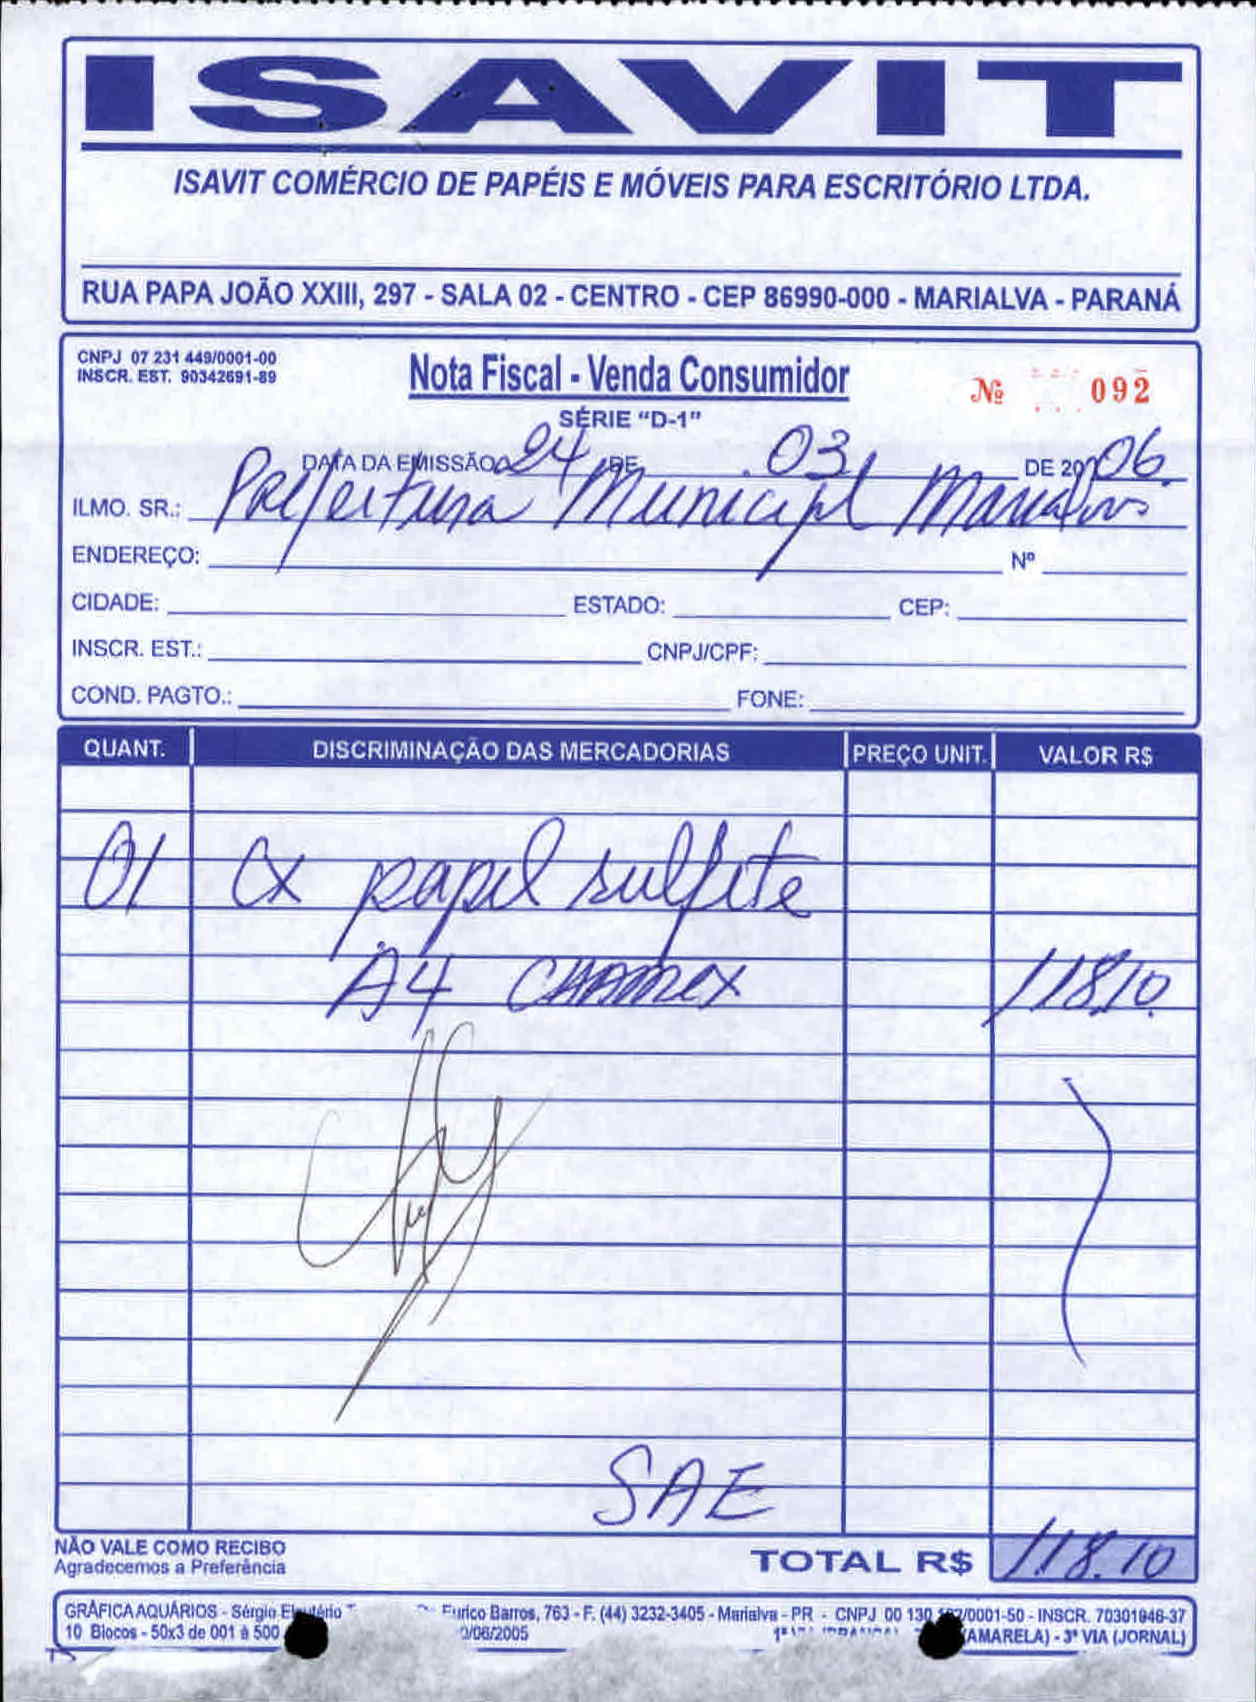 ISAVIT
ISAVIT COMÉRCIO DE PAPÉIS E MÓVEIS PARA ESCRITÓRIO LTDA.
RUA PAPA JOÃO XXIII, 297 - SALA 02 - CENTRO - CEP 86990-000 - MARIALVA - PARANÁ
CNPJ 07 231 449/0001-00
INSCR. EST. 90342691-89
Nota Fiscal - Venda Consumidor
Nº 092
SÉRIE "D-1"
DATA DA EMISSÃO 24 DE 03 DE 2006
ILMO. SR.: Prefeitura Municipl Marialva
ENDEREÇO: Nº
CIDADE: ESTADO: CEP:
INSCR. EST.: CNPJ/CPF:
COND. PAGTO.: FONE:
QUANT. DISCRIMINAÇÃO DAS MERCADORIAS PREÇO UNIT. VALOR R$
01 Cx papel sulfite
A4 CHAMEX 118,10
SAE
NÃO VALE COMO RECIBO
Agradecemos a Preferência
TOTAL R$ 118.10
GRÁFICA AQUÁRIOS - Sérgio Eurico Barros, 763 - F. (44) 3232-3405 - Marialva - PR - CNPJ 00 130 /0001-50 - INSCR. 70301946-37
10 Blocos - 50x3 de 001 à 500 /06/2005 (AMARELA) - 3ª VIA (JORNAL)